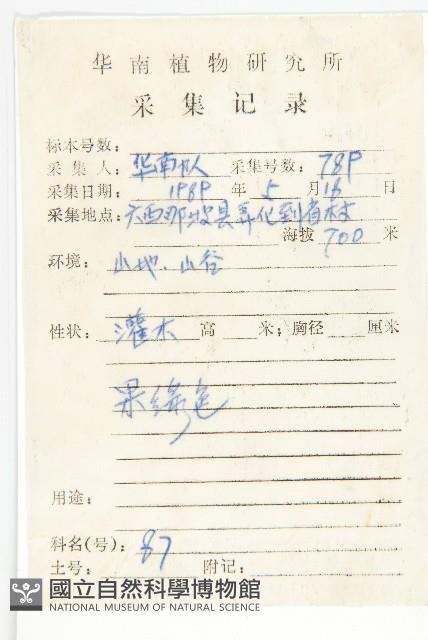 华南植物研究所
采集记录
标本号数：
采集人：华南队 采集号数：789
采集日期：1989年5月16日
采集地点：广西那坡县弄化到省村
海拔 700 米
环境：山地、山谷
性状：灌木 高 米；胸径 厘米
果绿色
用途：
科名(号)：87
土号： 附记：
國立自然科學博物館
NATIONAL MUSEUM OF NATURAL SCIENCE